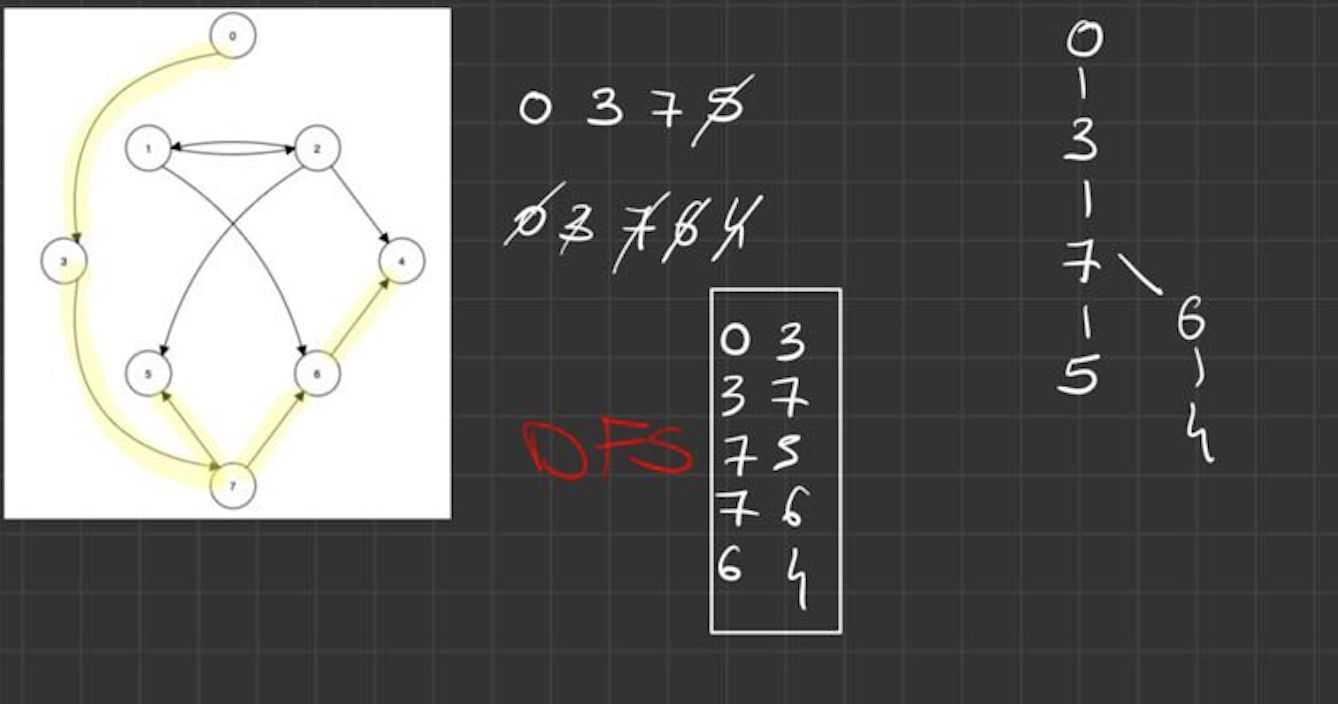 0
1 2
3 4
5 6
7
0 3 7 5
0 3 7 6 4
DFS
0 3
3 7
7 5
7 6
6 4
0
3
7
6
5
4